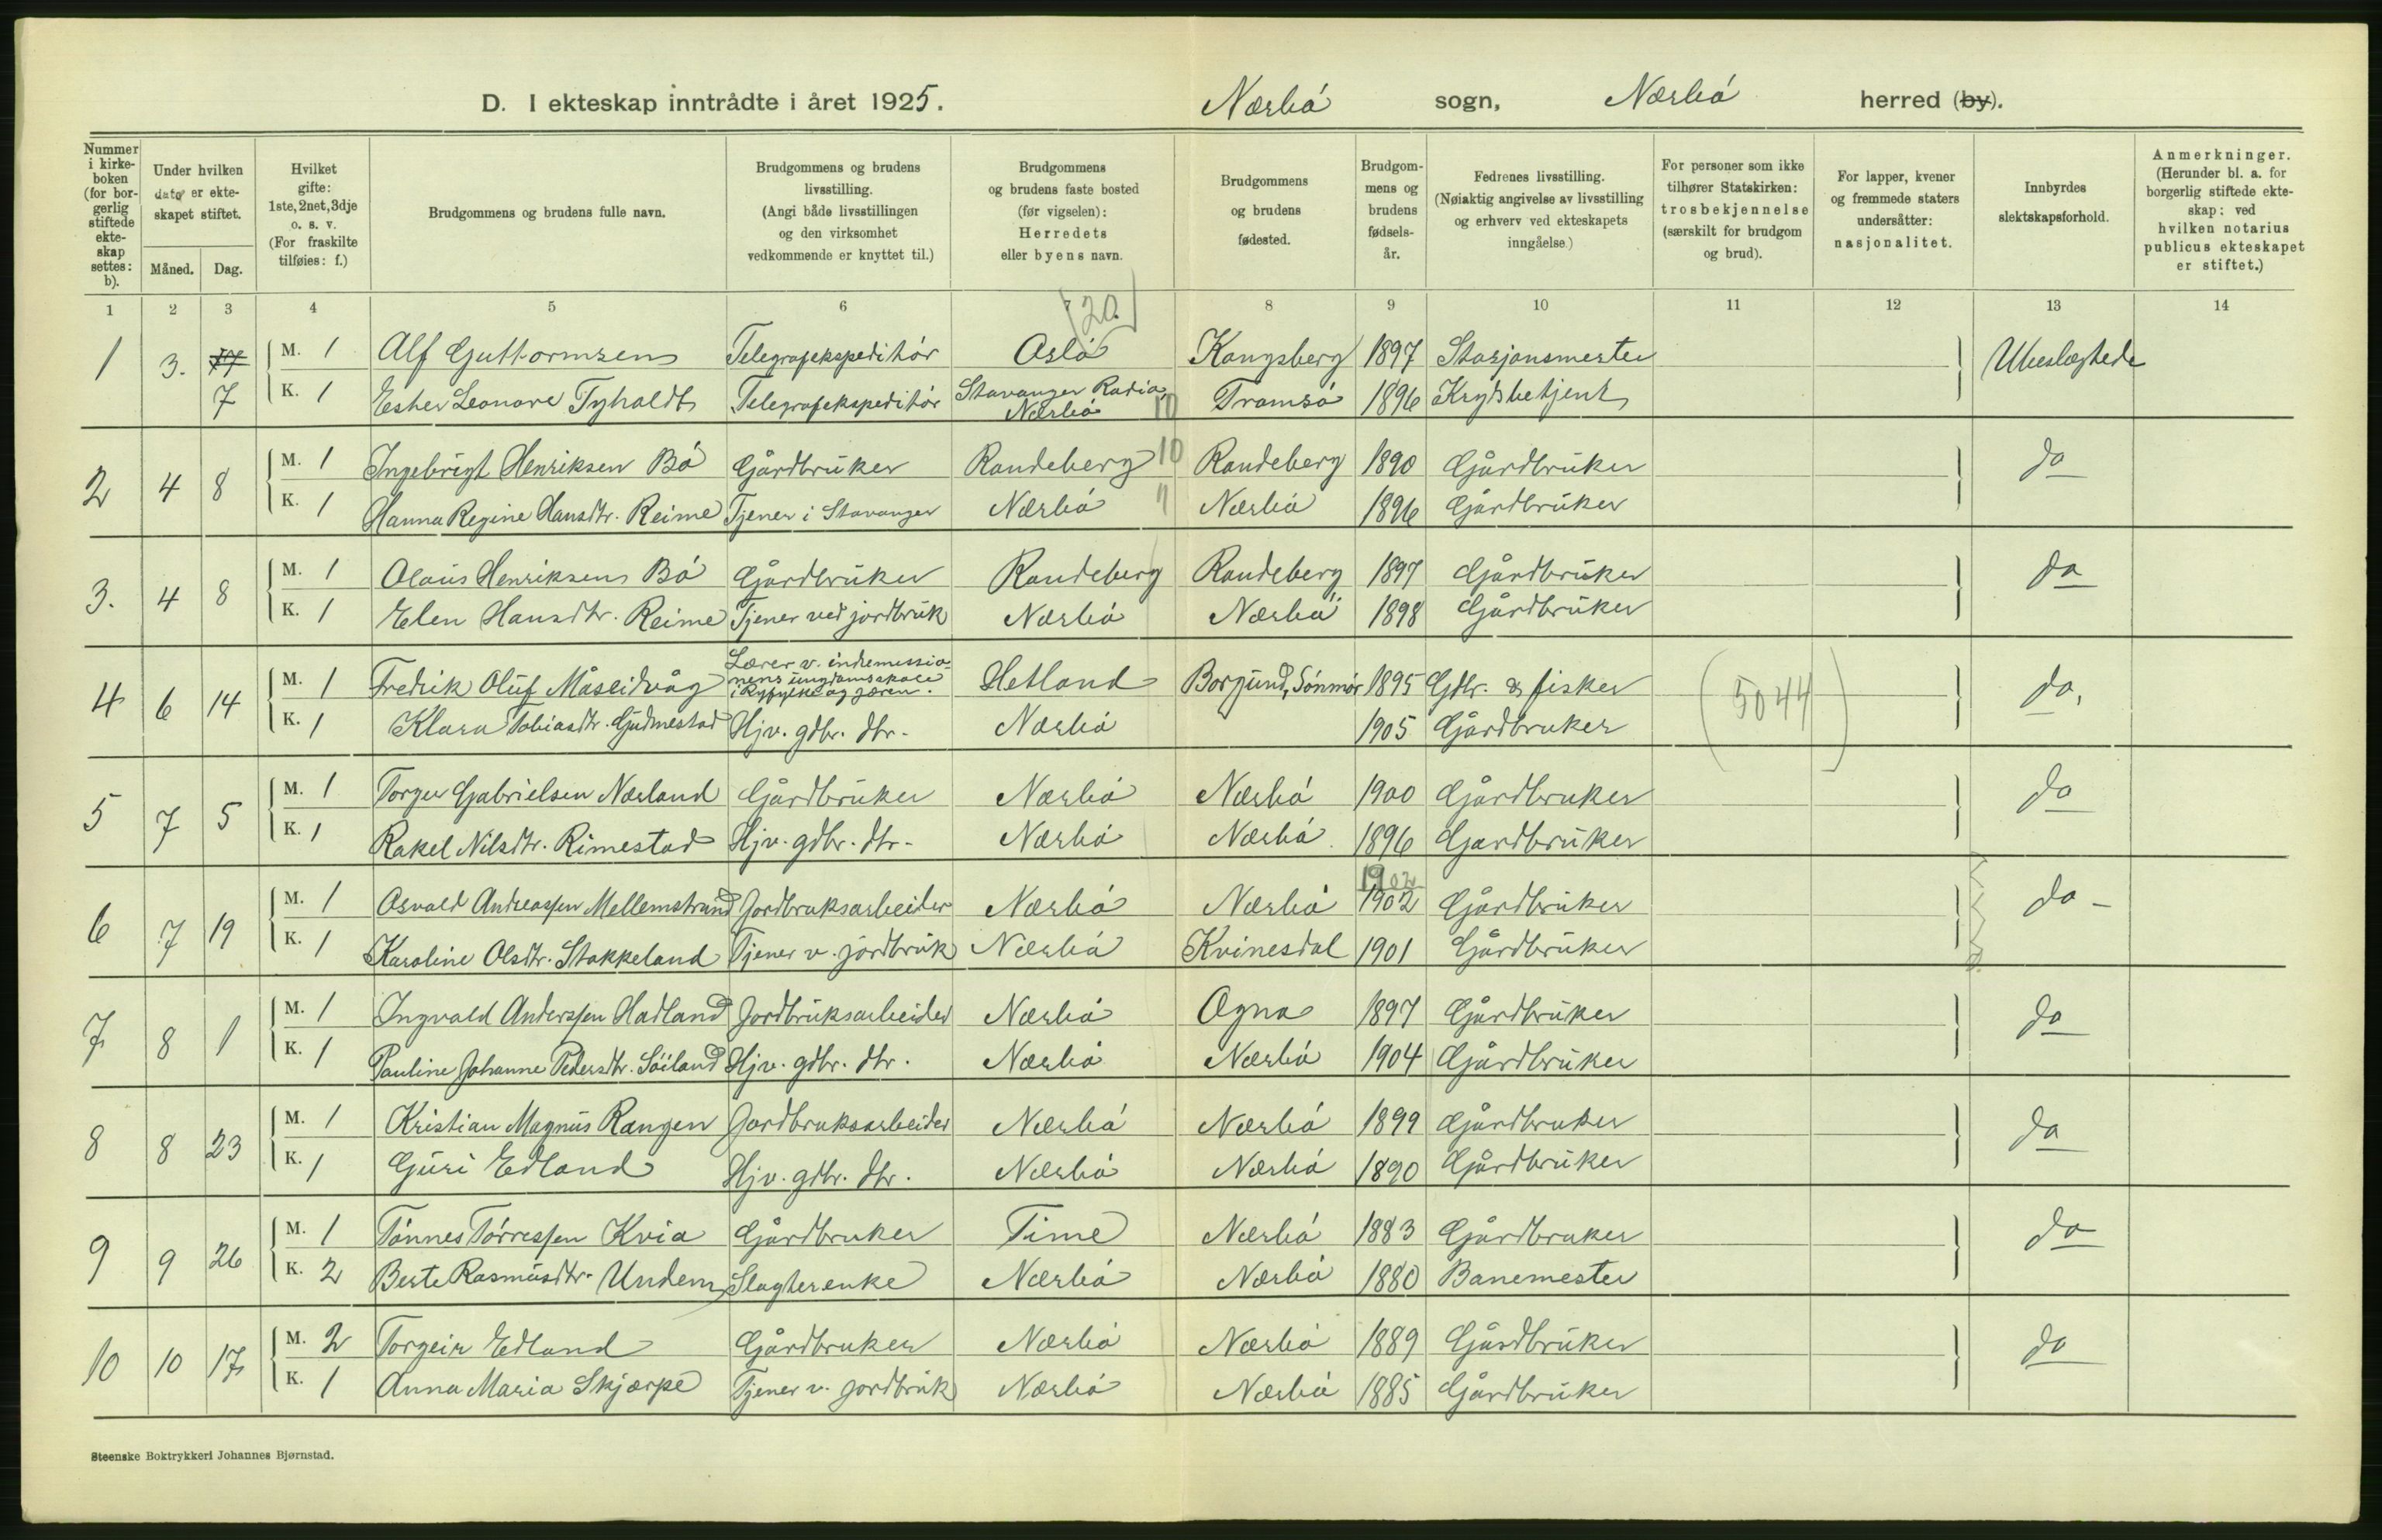 D. I ekteskap inntrådte i året 1925. Nærbó sogn, Nærbó herred (by).
Nummer i kirke-boken (for bor-gerlig stiftede ekte-skap settes: b).
Under hvilken dato er ekte-skapet stiftet.
Måned. Dag.
Hvilket gifte: 1ste, 2net, 3dje o. s. v. (For fraskilte tilføies: f.)
Brudgommens og brudens fulle navn.
Brudgommens og brudens livsstilling. (Angi både livsstillingen og den virksomhet vedkommende er knyttet til.)
Brudgommens og brudens faste bosted (før vigselen): Herredets eller byens navn.
Brudgommens og brudens fødested.
Brudgom-mens og brudens fødsels-år.
Fedrenes livsstilling. (Nøiaktig angivelse av livsstilling og erhverv ved ekteskapets inngåelse.)
For personer som ikke tilhører Statskirken: trosbekjennelse (særskilt for brudgom og brud).
For lapper, kvener og fremmede staters undersåtter: nasjonalitet.
Innbyrdes slektskapsforhold.
Anmerkninger. (Herunder bl. a. for borgerlig stiftede ekte-skap: ved hvilken notarius publicus ekteskapet er stiftet.)
1 2 3 4 5 6 7 8 9 10 11 12 13 14
(20.)
1 3. 17 M. 1 Alf Guttormsen Telegrafekspeditór Oslo Kongsberg 1897 Stasjonsmester Ubeslegtede
7 K. 1 Esther Leonore Tyholdt Telegrafekspeditór Stavanger Radio, Nærbó 10 Tromsó 1896 Krydsbetjent
2 4 8 M. 1 Ingebrigt Henriksen Bó Gårdbruker Randeberg 10 Randeberg 1890 Gårdbruker do
K. 1 Hanna Regine Hansdtr. Reime Tjener i Stavanger Nærbó " Nærbó 1896 Gårdbruker
3. 4 8 M. 1 Olaus Henriksen Bó Gårdbruker Randeberg Randeberg 1897 Gårdbruker do
K. 1 Elen Hansdtr. Reime Tjener ved jordbruk Nærbó Nærbó 1898 Gårdbruker
4 6 14 M. 1 Fredrik Oluf Måseidvåg Lærer v. indremissio-nens ungdomsskole i Ryfylke og jæren. Hetland Borgund, Sónmór 1895 Gdbr. & fisker (5044) do.
K. 1 Klara Tobiasdtr. Gudmestad Hjv. gdbr. dtr. Nærbó 1905 Gårdbruker
5 7 5 M. 1 Torger Gabrielsen Nærland Gårdbruker Nærbó Nærbó 1900 Gårdbruker do
K. 1 Rakel Nilsdtr. Rimestad Hjv. gdbr. dtr. Nærbó Nærbó. 1896 Gardbruker
1902
6 7 19 M. 1 Osvald Andreassen Mellemstrand Jordbruksarbeider Nærbó Nærbó 1902 Gårdbruker do -
K. 1 Karoline Olsdtr. Stokkeland Tjener v. jordbruk Nærbó Kvinesdal 1901 Gårdbruker
7 8 1 M. 1 Ingvald Anderssen Hadland Jordbruksarbeider Nærbó Ogna 1897 Gårdbruker do
K. 1 Pauline Johanne Pedersdtr. Sóiland Hjv. gdbr. dtr. Nærbó Nærbó 1904 Gårdbruker
8 8 23 M. 1 Kristian Magnus Rangen Jordbruksarbeider Nærbó Nærbó 1899 Gårdbruker do
K. 1 Guri Edland Hjv. gdbr. dtr. Nærbó Nærbó 1890 Gårdbruker
9 9 26 M. 1 Tónnes Tórressen Kvia Gårdbruker Time Nærbó 1883 Gårdbruker do
K. 2 Berte Rasmusdtr. Undem Slagterenke Nærbó Nærbó 1880 Banemester
10 10 17 M. 2 Torgeir Edland Gårdbruker Nærbó Nærbó 1889 Gårdbruker do
K. 1 Anna Maria Skjærpe Tjener v. jordbruk Nærbó Nærbó 1885 Gårdbruker
Steenske Boktrykkeri Johannes Bjørnstad.